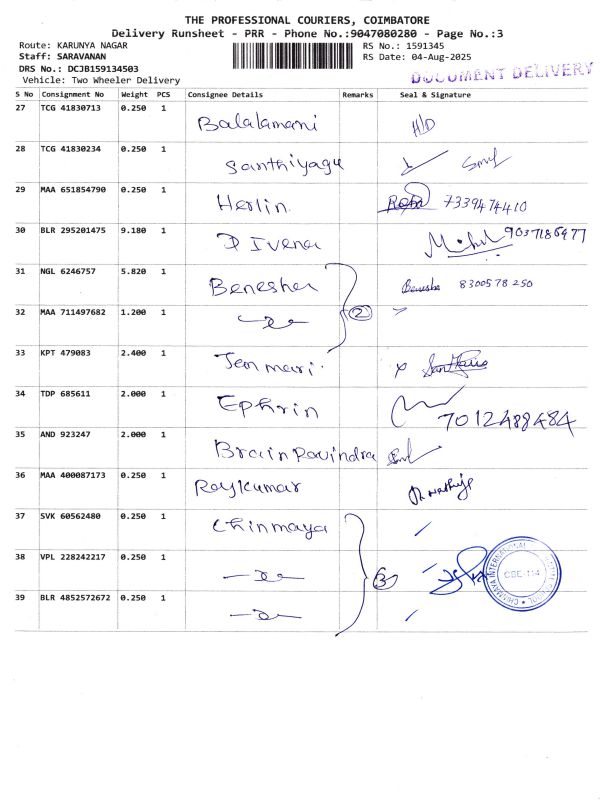 THE PROFESSIONAL COURIERS, COIMBATORE
Delivery Runsheet - PRR - Phone No.:9047080280 - Page No.:3
Route: KARUNYA NAGAR RS No.: 1591345
Staff: SARAVANAN RS Date: 04-Aug-2025
DRS No.: DCJB159134503
Vehicle: Two Wheeler Delivery DOCUMENT DELIVERY
S No Consignment No Weight PCS Consignee Details Remarks Seal & Signature
27 TCG 41830713 0.250 1 Balalamani H/D
28 TCG 41830234 0.250 1 Santhiyagu
29 MAA 651854790 0.250 1 Herlin. 7339474410
30 BLR 295201475 9.180 1 D Ivena 9037186977
31 NGL 6246757 5.820 1 Benesher Benesha 8300578250
32 MAA 711497682 1.200 1 2
33 KPT 479083 2.400 1 Jen mari.
34 TDP 685611 2.000 1 Ephrin 7012488484
35 AND 923247 2.000 1 Brain Ravindra
36 MAA 400087173 0.250 1 Rajkumar
37 SVK 60562480 0.250 1 Chinmaya
38 VPL 228242217 0.250 1 3 CBE-114
39 BLR 4852572672 0.250 1